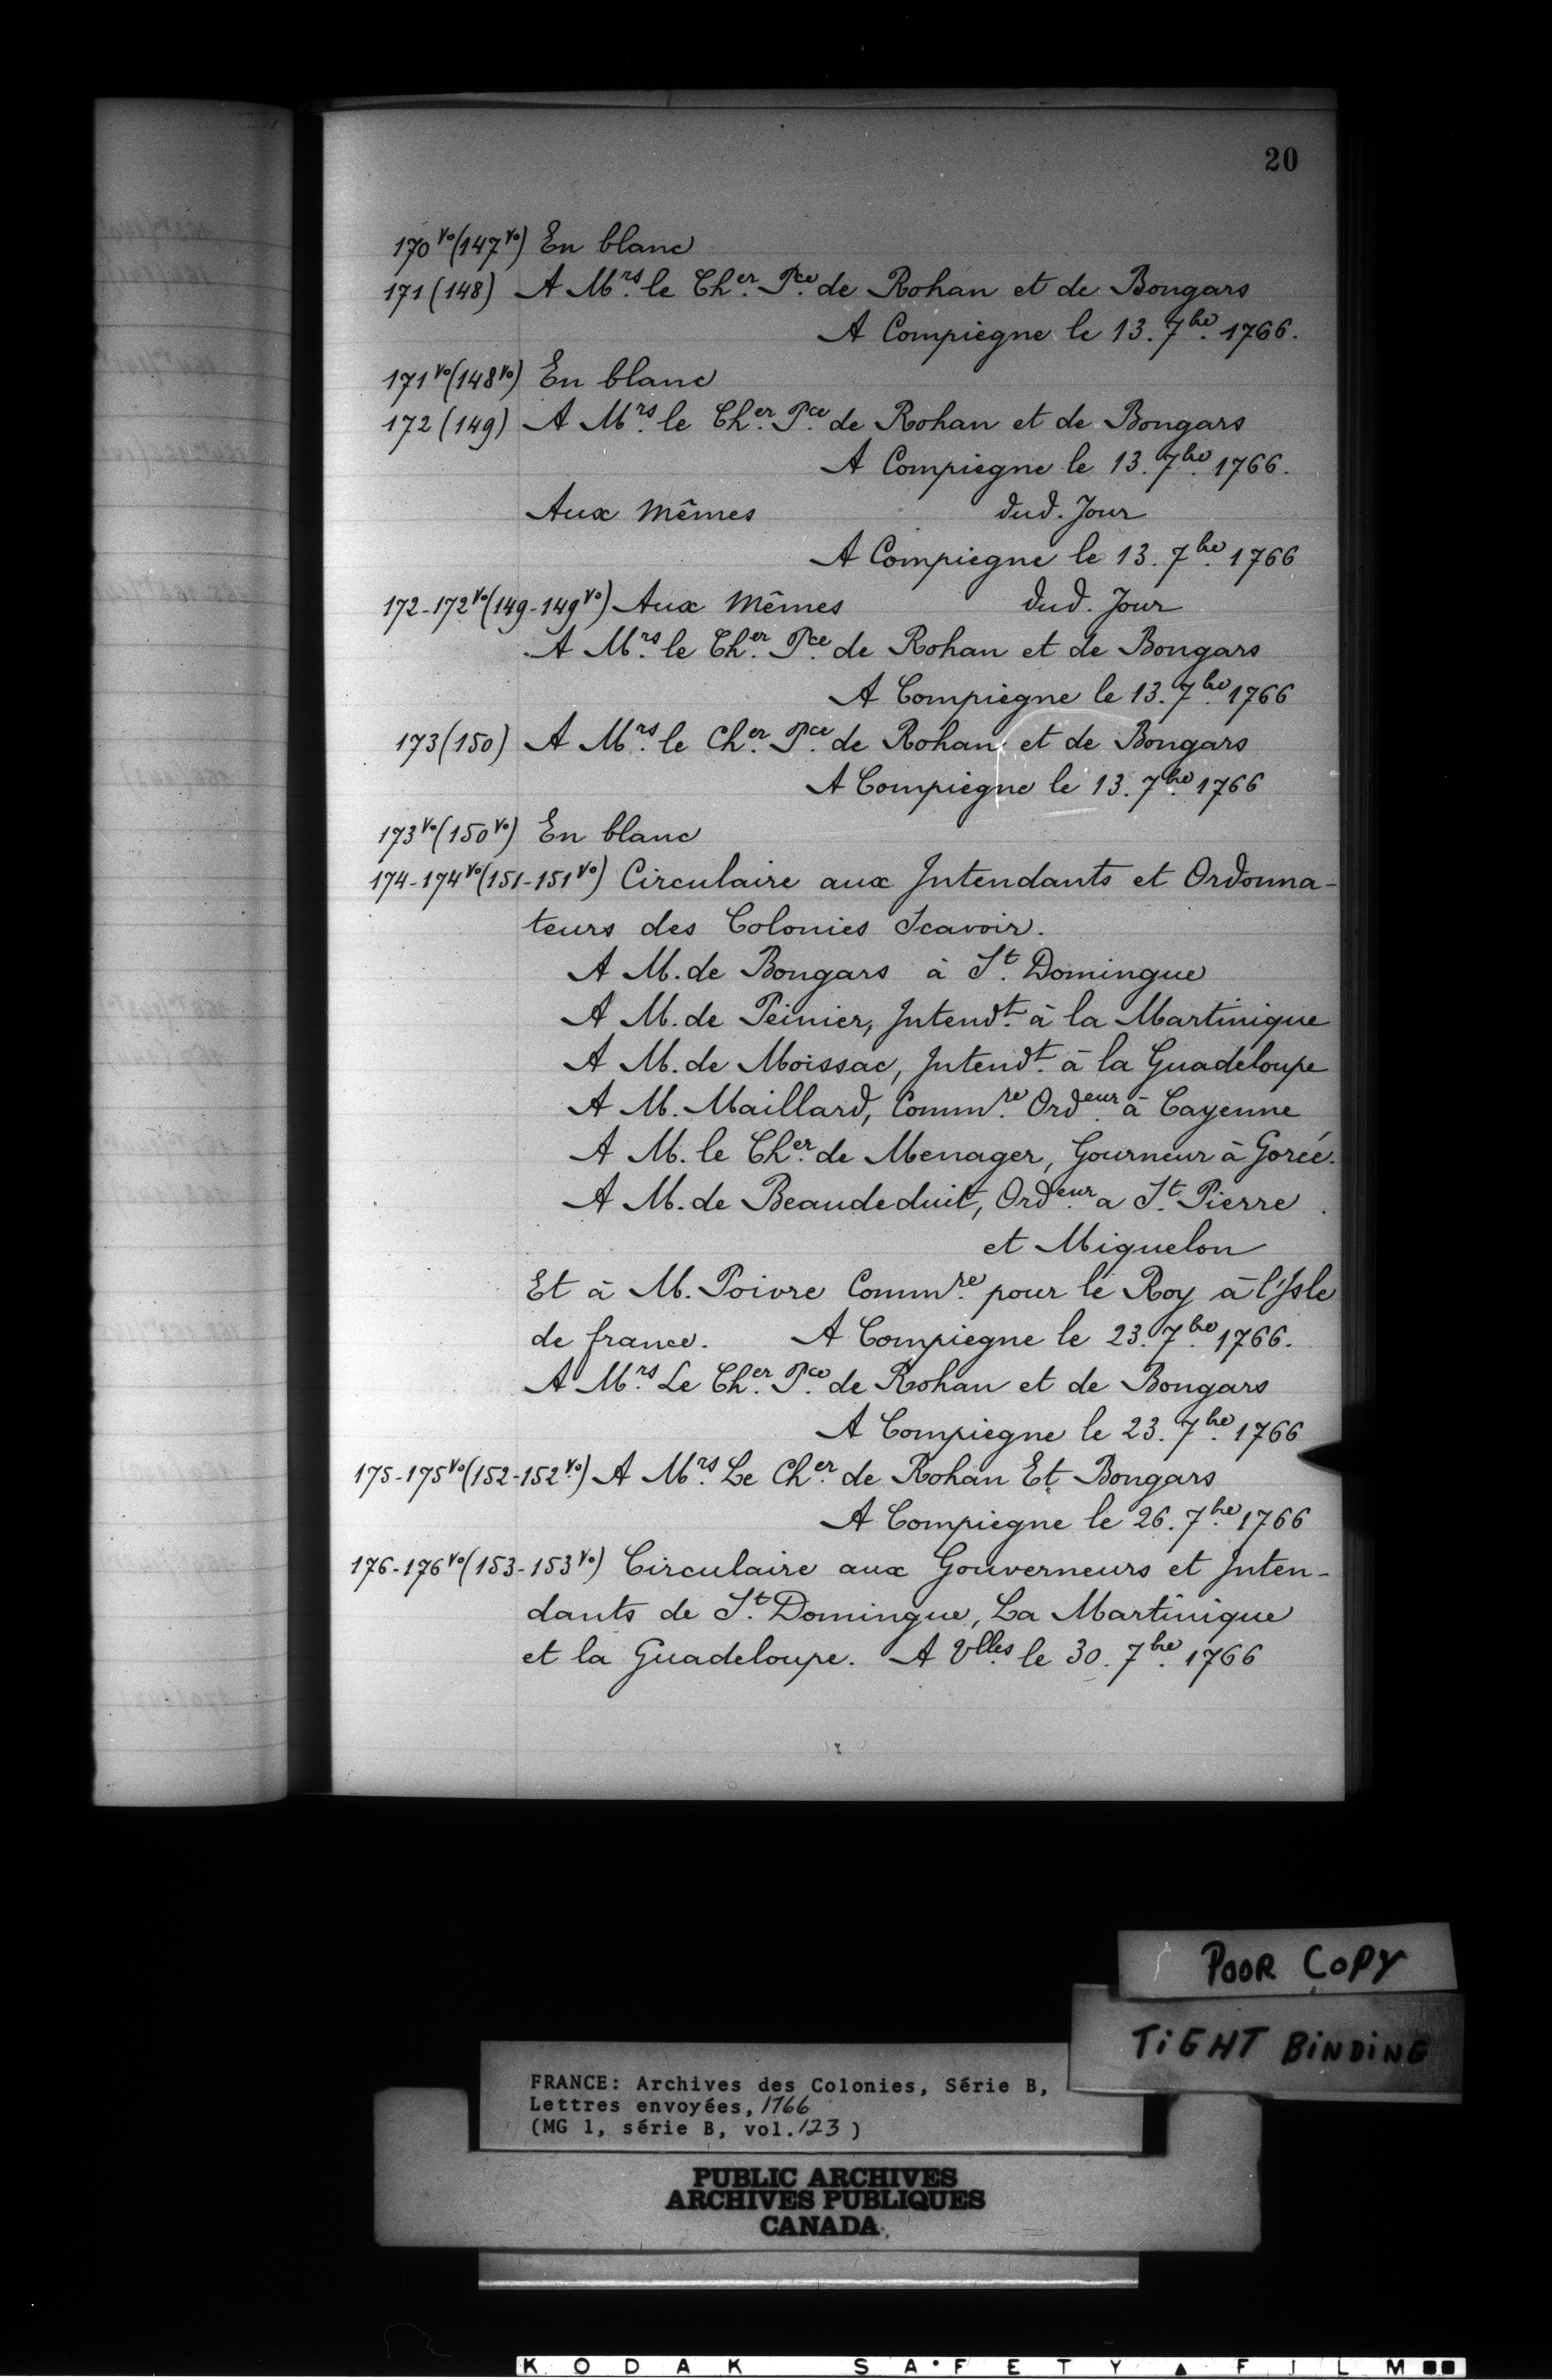 20
170 vo (147 vo) En blanc
171 (148) A Mrs. le Cher. Pce. de Rohan et de Bongars
A Compiègne le 13. 7bre. 1766.
171 vo (148 vo) En blanc
172 (149) A Mrs. le Cher. Pce. de Rohan et de Bongars
A Compiegne le 13. 7bre. 1766.
Aux Mêmes dud. Jour
A Compiegne le 13. 7bre. 1766
172-172 vo (149-149 vo) Aux Mêmes dud. Jour
A Mrs. le Cher. Pce. de Rohan et de Bongars
A Compiegne le 13. 7bre. 1766
173 (150) A Mrs. le Cher. Pce. de Rohan et de Bongars
A Compiègne le 13. 7bre. 1766
173 vo (150 vo) En blanc
174-174 vo (151-151 vo) Circulaire aux Intendants et Ordonna-
teurs des Colonies Scavoir.
A M. de Bongars à St. Domingue
A M. de Peinier, Intendt. à la Martinique
A M. de Moissac, Intendt. à la Guadeloupe
A M. Maillard, Commre. Ordeur. à Cayenne
A M. le Cher. de Menager, Gourneur à Gorée.
A M. de Beaudeduit, Ordeur. a St. Pierre
et Miguelon
Et à M. Poivre Commre. pour le Roy à l'Isle
de france. A Compiegne le 23. 7bre. 1766.
A Mrs. Le Cher. Pce. de Rohan et de Bongars
A Compiegne le 23. 7bre. 1766
175-175 vo (152-152 vo) A Mrs. Le Cher. de Rohan Et Bongars
A Compiegne le 26. 7bre. 1766
176-176 vo (153-153 vo) Circulaire aux Gouverneurs et Inten-
dants de St. Domingue, La Martinique
et la Guadeloupe. A Vlles. le 30. 7bre. 1766
POOR COPY
TIGHT BINDING
FRANCE: Archives des Colonies, Série B,
Lettres envoyées, 1766
(MG 1, série B, vol. 123)
PUBLIC ARCHIVES
ARCHIVES PUBLIQUES
CANADA
KODAK SAFETY FILM